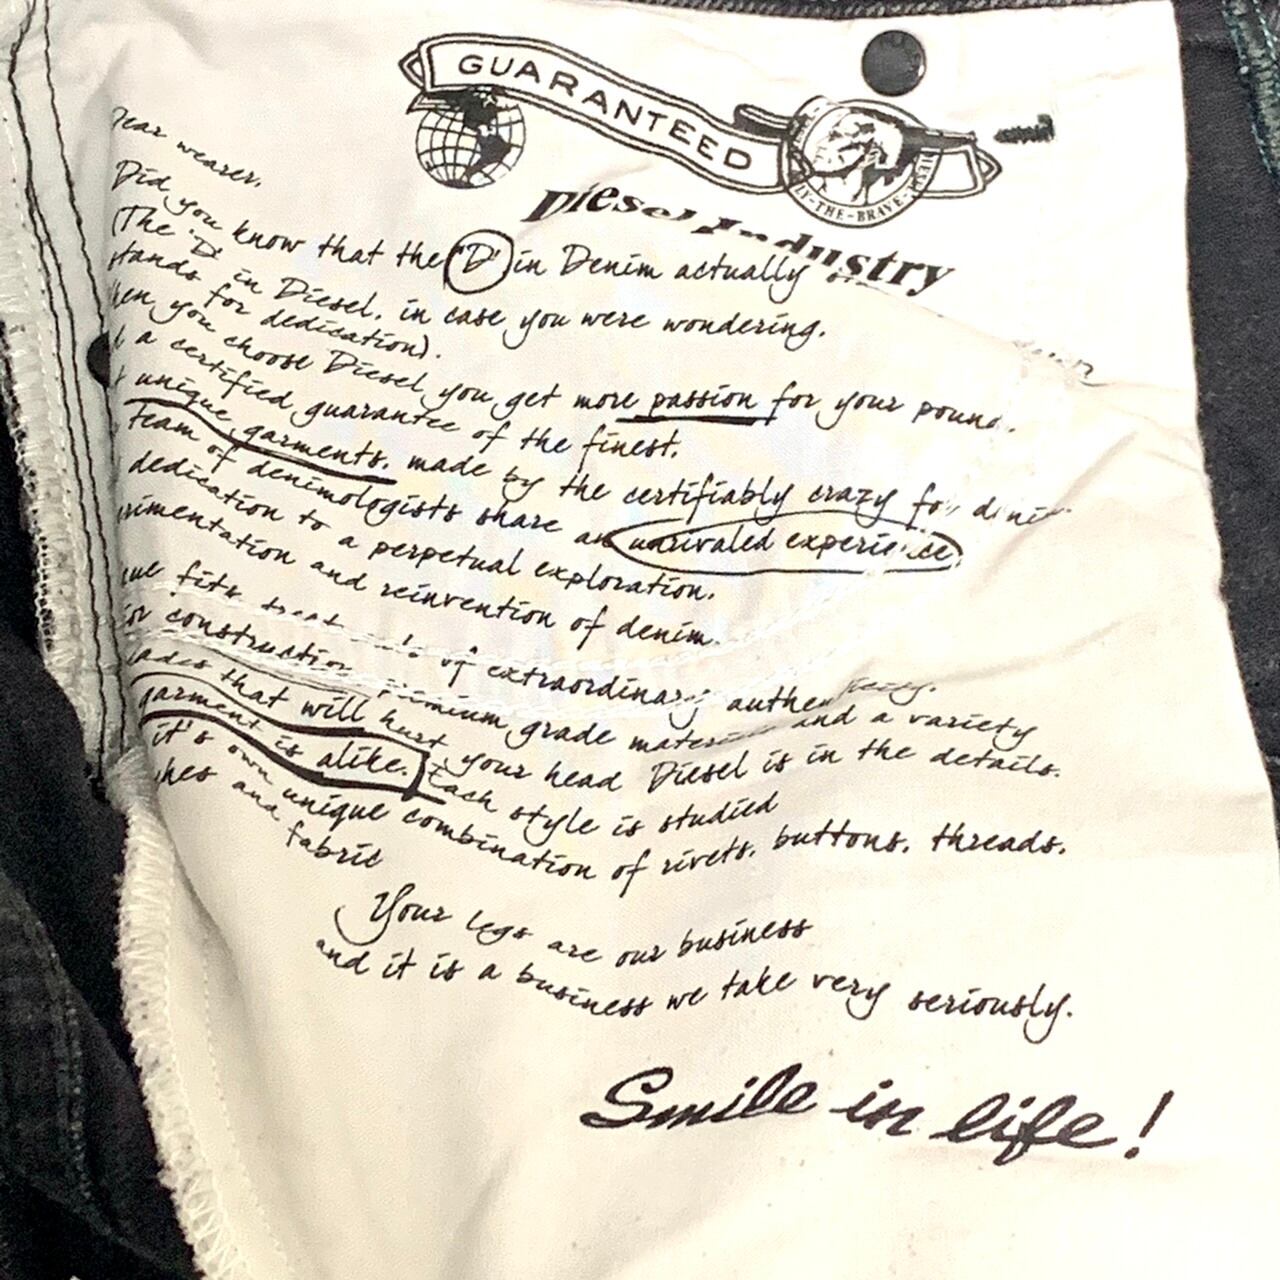 GUARANTEED
LY-THE-BRAVE
Diesel Industry
Dear wearer,
Did you know that the 'D' in Denim actually
(The 'D' in Diesel, in case you were wondering,
stands for dedication).
hen you choose Diesel you get more passion for your pound,
a certified guarantee of the finest,
unique garments, made by the certifiably crazy for
team of denimologists share an unrivaled experience
dedication to a perpetual exploration,
rimentation and reinvention of denim
fits of extraordinary
or construction premium grade and a variety
that will hurt your head Diesel is in the details.
garment is alike. Each style is studied
it's own unique combination of rivets, buttons, threads,
hes and fabric
Your legs are our business
and it is a business we take very seriously.
Smile in life!